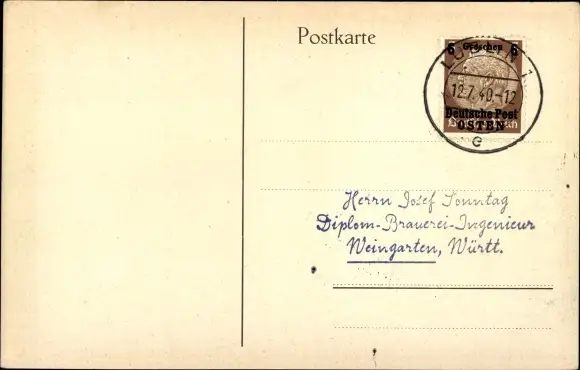 Postkarte
6 Groschen 6
LUBLIN 1
12.7.40.-12
Deutsche Post
OSTEN
e
Herrn Josef Sonntag
Diplom-Brauerei-Ingenieur
Weingarten, Württ.